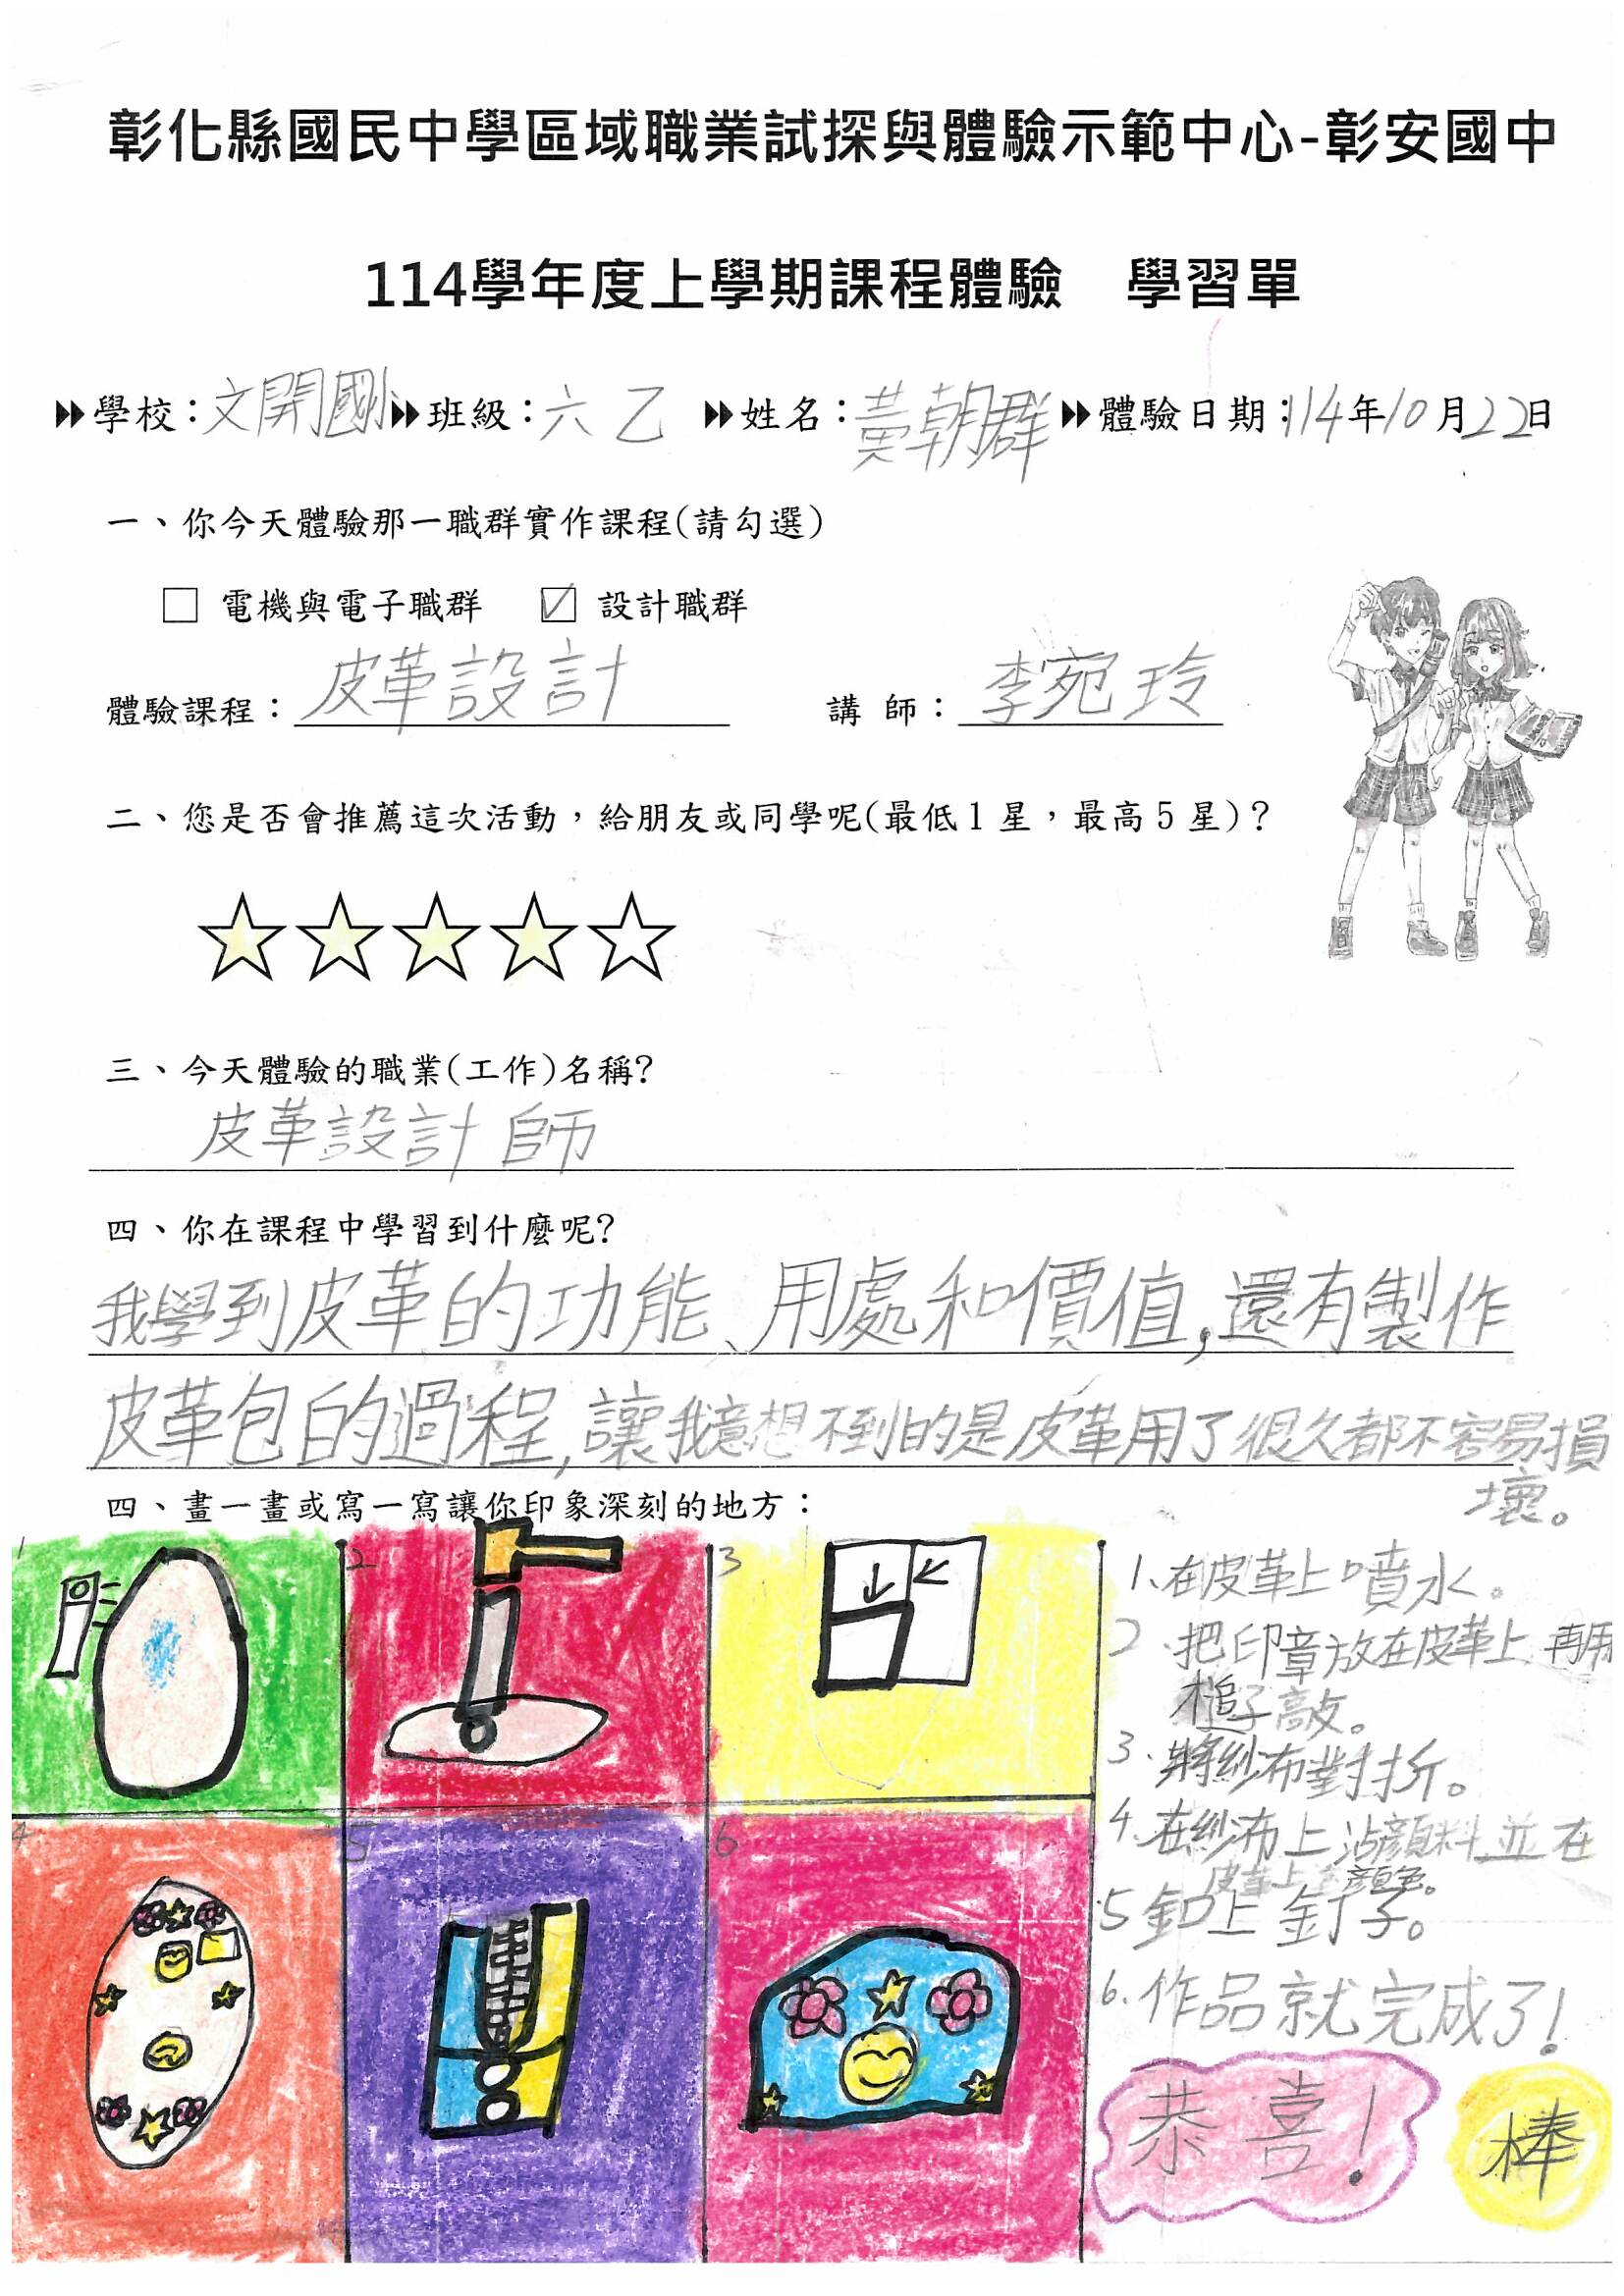 彰化縣國民中學區域職業試探與體驗示範中心-彰安國中
114學年度上學期課程體驗 學習單
學校：文開國小 班級：六乙 姓名：黃朝群 體驗日期：114年10月22日
一、你今天體驗那一職群實作課程(請勾選)
□ 電機與電子職群 ☑ 設計職群
體驗課程：皮革設計 講 師：李宛玲
二、您是否會推薦這次活動，給朋友或同學呢(最低1星，最高5星)？
三、今天體驗的職業(工作)名稱?
皮革設計師
四、你在課程中學習到什麼呢?
我學到皮革的功能、用處和價值,還有製作
皮革包的過程,讓我意想不到的是皮革用了很久都不容易損
壞。
四、畫一畫或寫一寫讓你印象深刻的地方：
1
2
3
4
5
6
1、在皮革上噴水。
2、把印章放在皮革上,再用
槌子敲。
3、將紗布對折。
4、在紗布上沾顏料並在
皮革上顏色。
5 釦上釘子。
6.作品就完成了!
恭喜!
棒